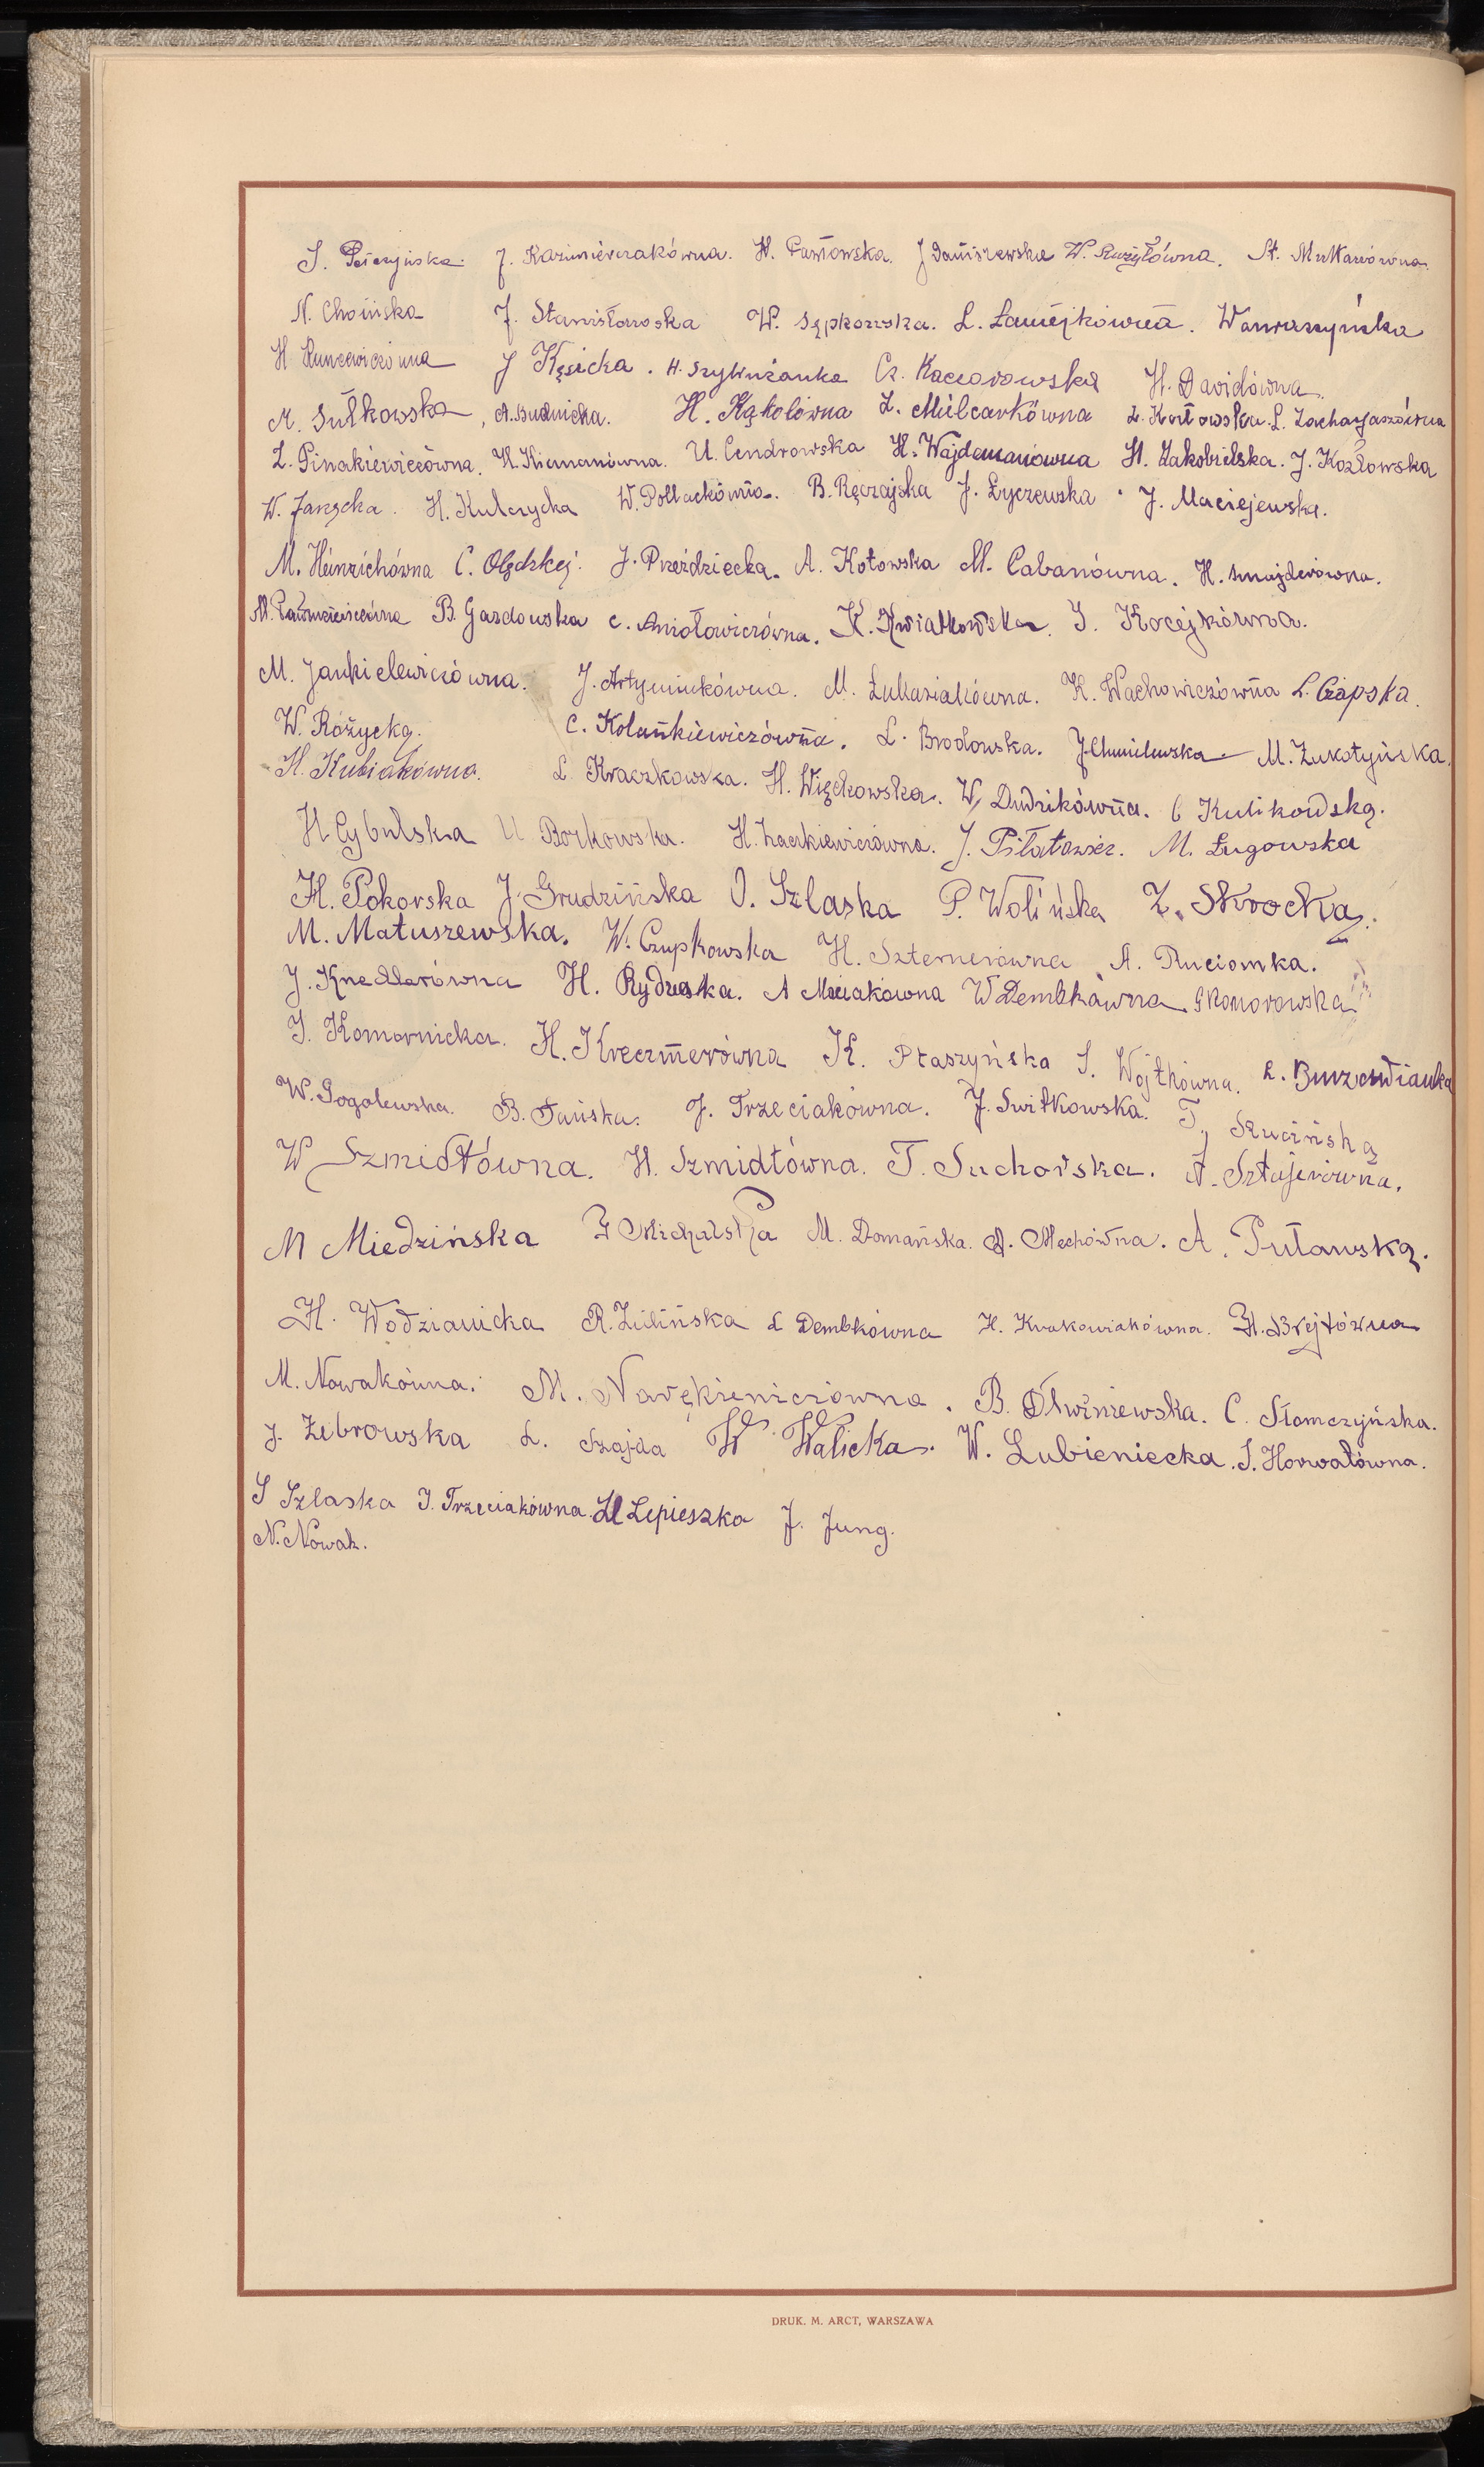 J. Kazimierczakówna. H. Pawłowska. J Daniszewska W. St.
N. Choińska J. Stanisławska W. Sępkowska. L. Łamejkówna. Wawrzszyńska
H J Kęsicka. H. Cz. Kaczorowska H. Davidówna.
M. Sułkowska, A. Budnicka. H. Kąkolówna Z. Milcarkówna Z. Kozłowska. L. Zacharjaszówna
Z. Pinakiewiczówna. H. U. Cendrowska H. Wajdemanówna H. Zakobielska. J. Kozłowska
W. Janęcka. H. Kulczycka W. Pollackówna. B. Ręczajska J. Łyczewska. J. Maciejewska.
M. Heinrichówna C. Olędzka. J. Przeździecka. A. Kotowska M. Cabanówna. H. Sznajderówna.
M. B. Gazdowska C. Aniołowiczówna. K. Kwiatkowska. J. Kocejkówna.
M. Jankielewiczówna. J. Artymiukówna. M. Łukasiakówna. K. Wachowiczówna L. Czapska.
W. Różycka. C. Kolankiewiczówna. L. Brodowska. J Chmielewska M. Żukotyńska.
H. Kubiakówna. L. Kraczkowska. H. Więckowska. W. Dudzikówna. C Kulikowska.
H Cybulska U Borkowska. H. Żaczkiewiczówna. J. Piłatowicz. M. Ługowska
H. Pokorska J. Grudzińska O. Szlaska P. Wolińska Z. Skrocka.
M. Matuszewska. W. Czupkowska H. Szternerówna A. Ruciomka.
J. Knedlerówna H. Rydzeska. A Maciakówna W Dembkówna. G Komorowska
J. Komornicka. H. Kreczmerówna K. Ptaszyńska S. Wojtkówna. L. Burzewianka
W. Gogolewska. B. Fańska. J. Trzeciakówna. J. Switkowska. T. Szucińska
W Szmidtówna. H. Szmidtówna. T. Suchorska. A. Sztajerówna.
M Miedzińska Z Michalska M. Domańska. A. Mechówna. A. Puławska.
H. Wodzianicka R. Zielińska L Dembkówna H. Krakowiakówna. H. Brejtówna
M. Nowakówna. M. Narękiewiczówna. B. Oliwiniewska. C. Słomczyńska.
J. Żebrowska L. Szajda W Walicka. W. Lubieniecka. S. Horwatówna.
S Szlaska J. Trzeciakówna. H Lepieszka J. Jung.
N. Nowak.
DRUK. M. ARCT, WARSZAWA